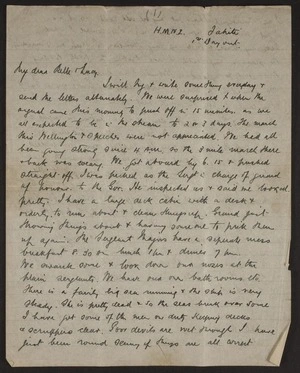 (1)
H.M.N.Z. Tahiti
1st Day out.
My dear Belle & Lucy
I will try & write something everyday &
send the letters alternately. We were surprised when the
signal came this morning to push off in 15 minutes as we
all expected to be in the stream to 2 or 3 days. The march
thro Wellington & speeches were not appreciated. We had all
been going strong since 4 am. so the 5 mile march there
& back was weary. We got aboard by 6.15 & pushed
straight off. I was picked as the Sergt in charge of guard
of honour to the Gov. He inspected us & said we looked
pretty. I have a large deck cabin with a desk &
orderly to run about & clean things up. Grand job
throwing things about & having someone to pick them
up again. The Sergeant Majors have a separate mess
breakfast 8.30 or lunch 1pm & dinner 7 pm.
We snarl some & look down our noses at the
plain sergeants. We have our own bath rooms etc.
There is a fairly big sea running & the ship is very
steady. She is pretty dead & so the seas break over some
I have got some of the men on duty keeping decks
& scuppers clear. Poor devils are wet through. I have
just been round seeing if things are all correct